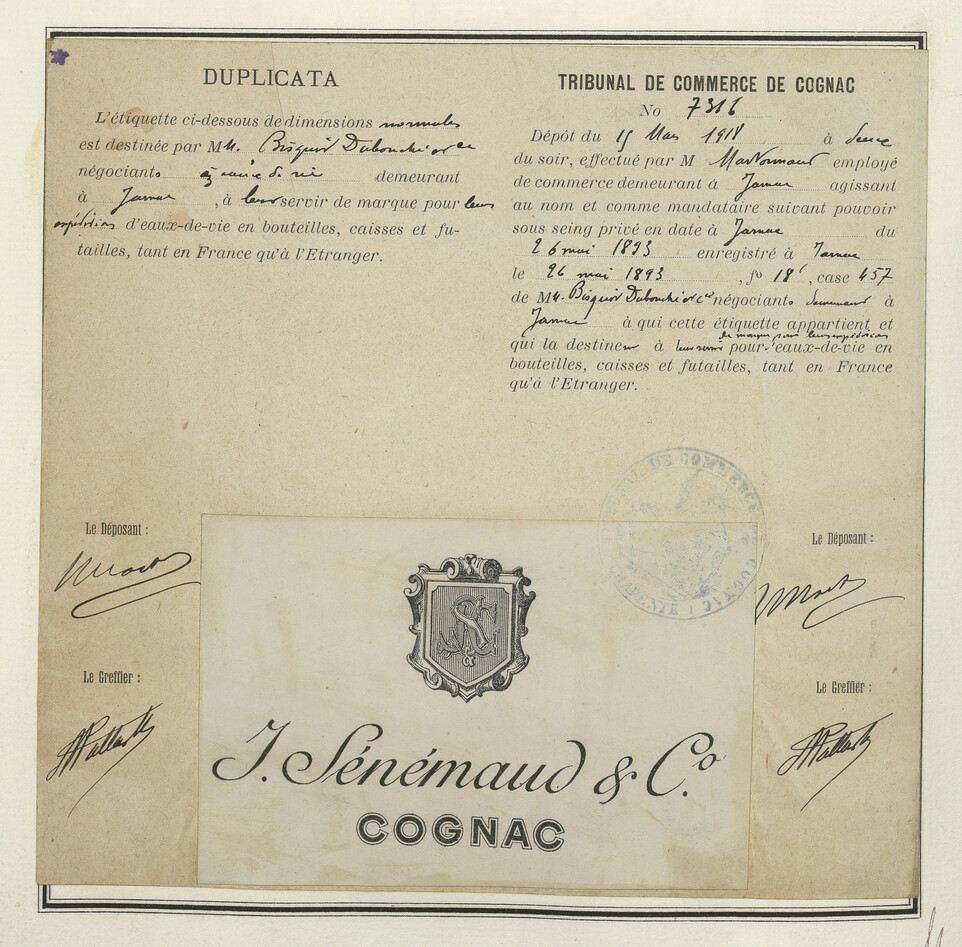 DUPLICATA
L'étiquette ci-dessous de dimensions normales
est destinée par MM. Bisquit Dubouché & Cie
négociants demeurant
à Jarnac, à leur servir de marque pour leurs
expéditions d'eaux-de-vie en bouteilles, caisses et fu-
tailles, tant en France qu'à l'Etranger.
TRIBUNAL DE COMMERCE DE COGNAC
No 7316
Dépôt du 15 Mars 1918 à deux
du soir, effectué par M employé
de commerce demeurant à Jarnac agissant
au nom et comme mandataire suivant pouvoir
sous seing privé en date à Jarnac du
26 mai 1893 enregistré à Jarnac
le 26 mai 1893, fo 18, case 457
de MM. Bisquit Dubouché & Cie négociants demeurant à
Jarnac à qui cette étiquette appartient et
de marque pour leurs expéditions
qui la destinent à leur servir pour d'eaux-de-vie en
bouteilles, caisses et futailles, tant en France
qu'à l'Etranger.
TRIBUNAL DE COMMERCE DE COGNAC
CHARENTE
Le Déposant :
Le Déposant :
Le Greffier :
Le Greffier :
J. Sénémaud & Co.
COGNAC